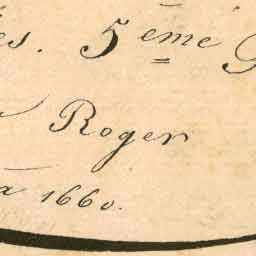 es. 5ème
Roger
à 1660.